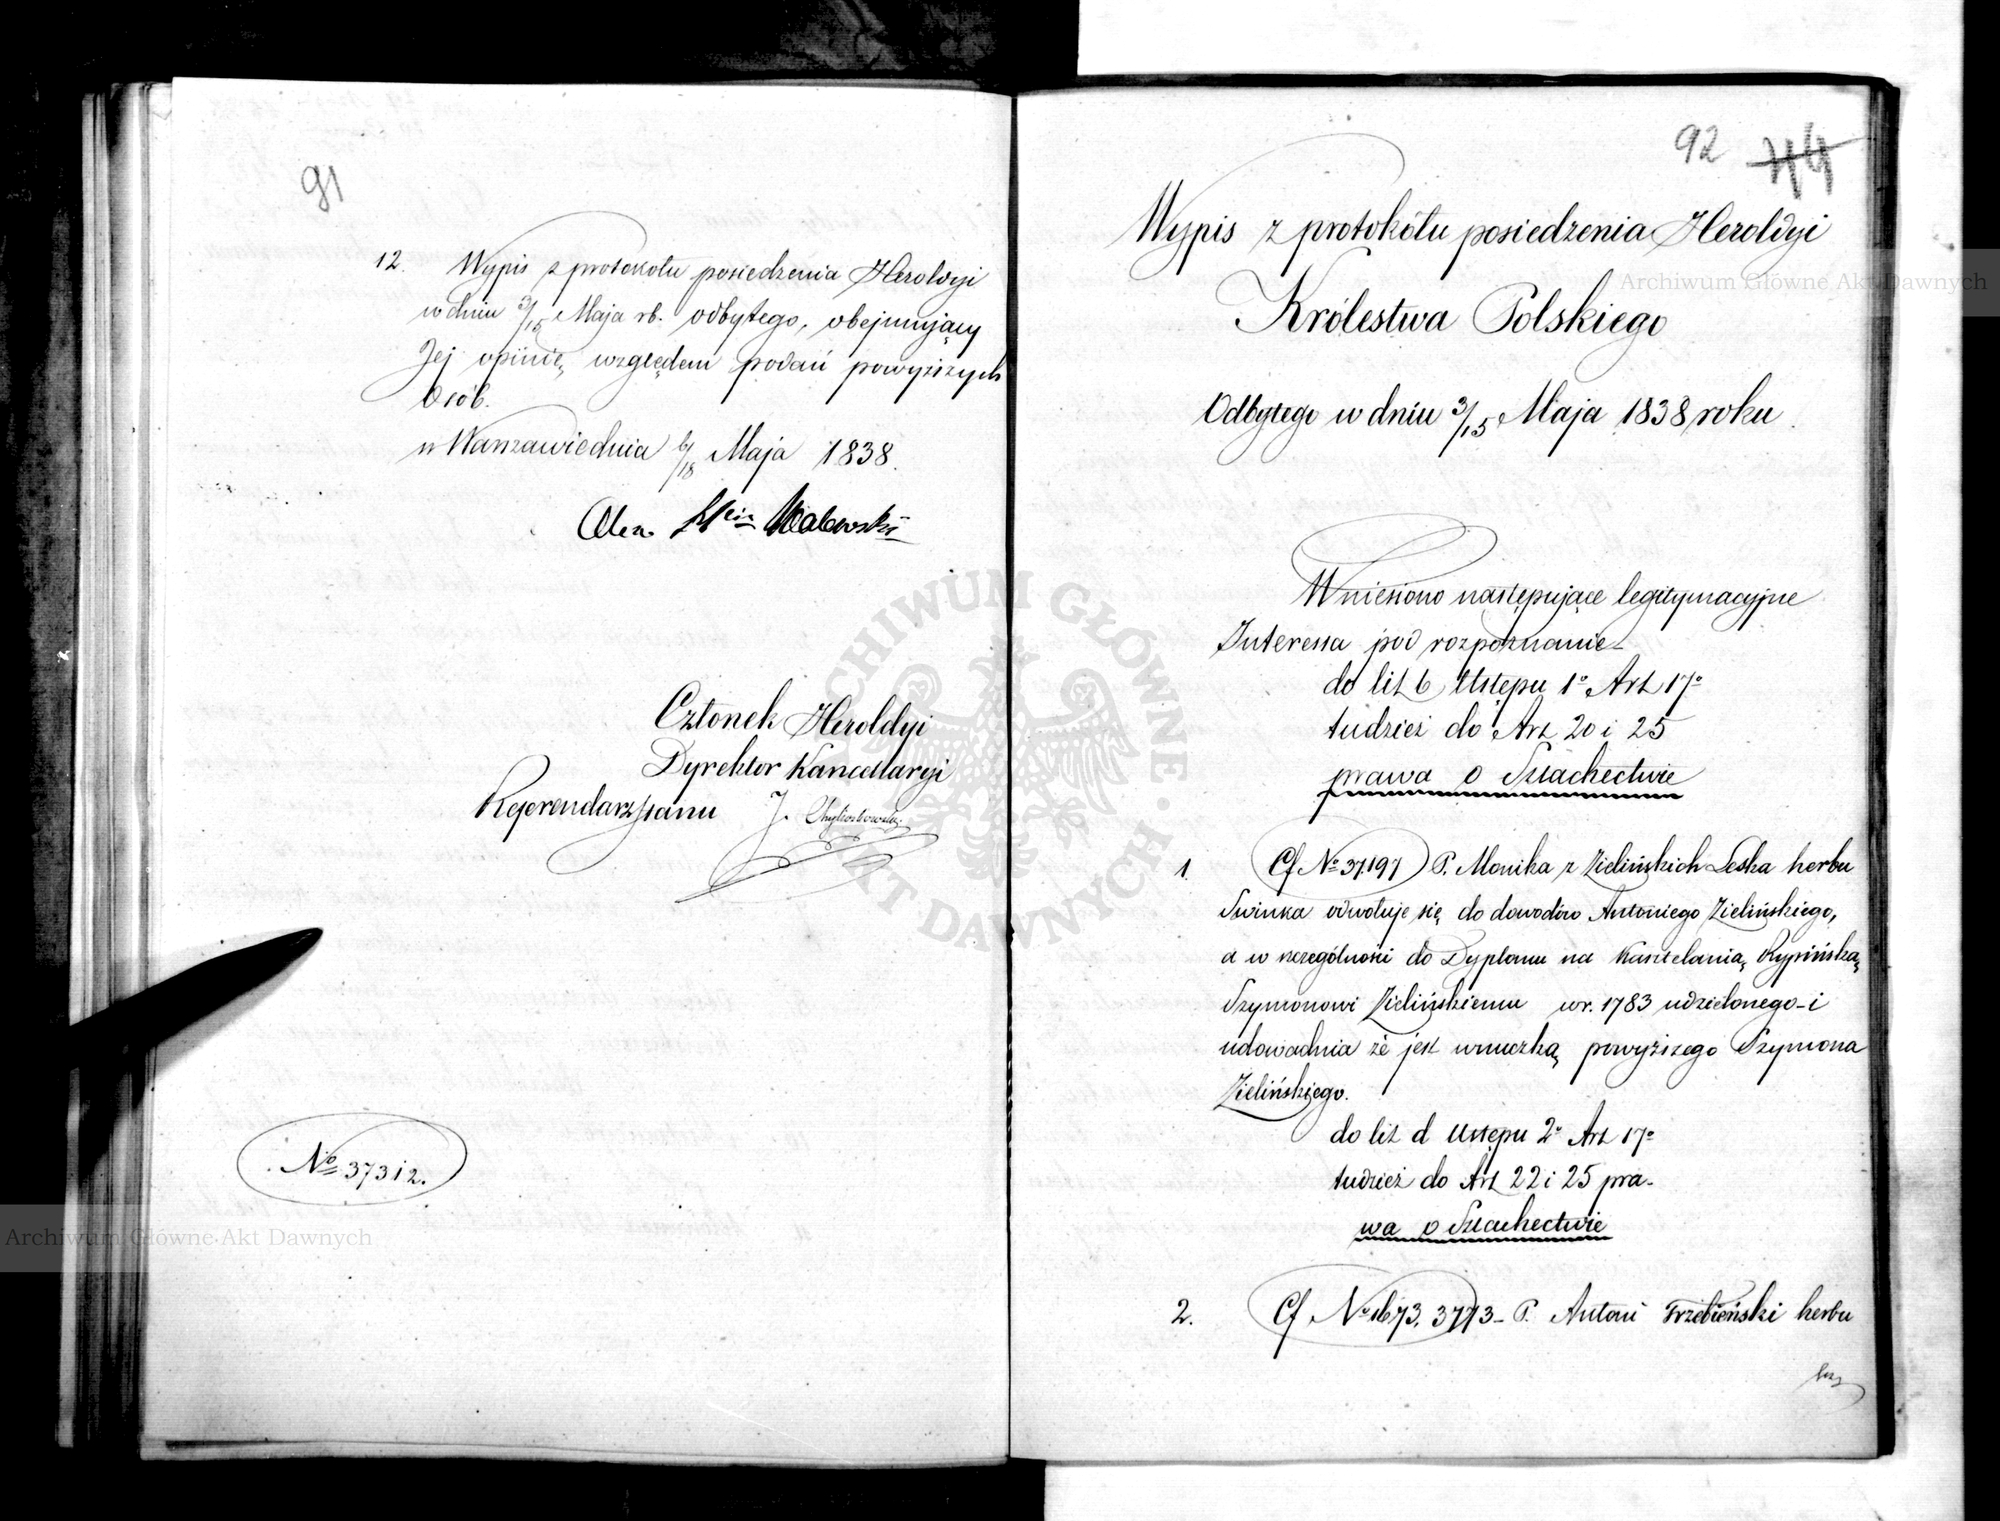 91
12. Wypis z protokołu posiedzenia Heroldyi
w dniu 3/15 Maja rb. odbytego, obejmujący
Jej opinię względem podań powyższych
Osób.
w Warszawie dnia 6/18 Maja 1838.
Alex. Walewski
Członek Heroldyi
Dyrektor Kancellaryi
Referendarz Stanu J.
No 37312.
92 44
Wypis z protokółu posiedzenia Heroldyi
Królestwa Polskiego
Odbytego w dniu 3/15 Maja 1838 roku.
Wniesiono następujące legitymacyjne
Interessa pod rozpoznanie
do lit b Ustępu 1o Art 17o
tudzież do Art 20 i 25
prawa o Szlachectwie
1. Cf No 37197 P. Monika z Zielińskich Leska herbu
Swinka odwołuje się do dowodów Antoniego Zielińskiego,
a w szczególności do Dyplomu na Kasztelanią Rypińską
Szymonowi Zielińskiemu w r. 1783 udzielonego - i
udowadnia że jest wnuczką powyższego Szymona
Zielińskiego.
do lit d Ustępu 2o Art 17o
tudzież do Art 22 i 25 pra-
wa o Szlachectwie
2. Cf No 1673. 3773 - P. Antoni Trzebieński herbu
Archiwum Główne Akt Dawnych
Archiwum Główne Akt Dawnych
ARCHIWUM GŁÓWNE AKT DAWNYCH